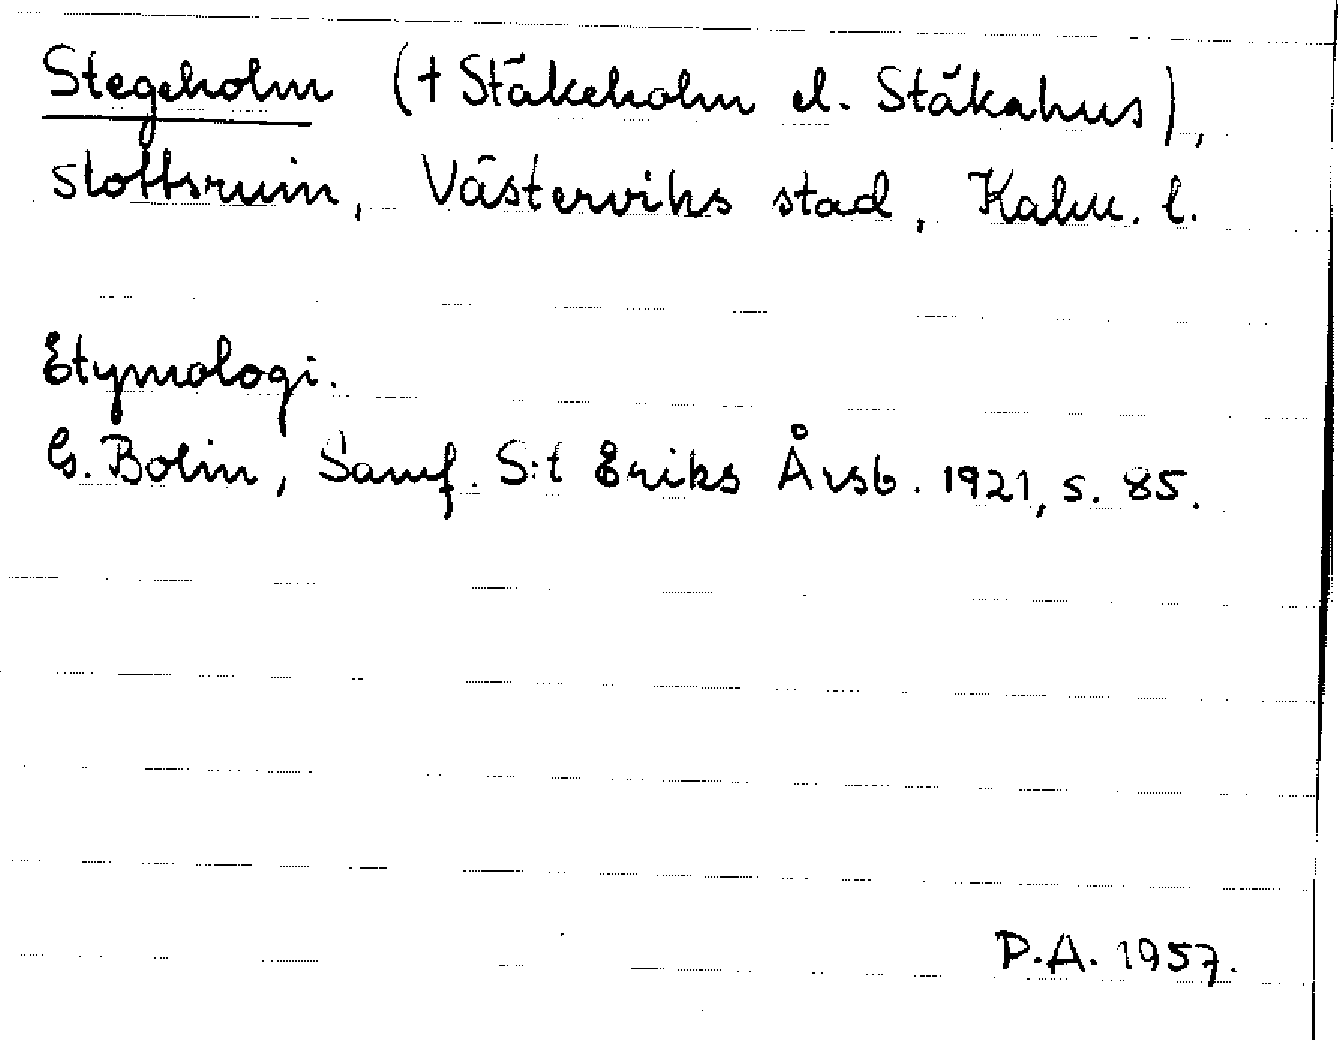 Stegeholm († Stäkeholm el. Stäkahus),
slottsruin, Västerviks stad, Kalm. l.
Etymologi.
G. Bolin, Samf. S:t Eriks Årsb. 1921, s. 85.
P.A. 1957.